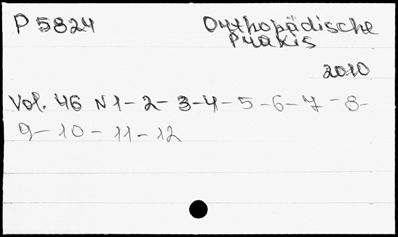 P 5824 Orthopädische
Praxis
2010
Vol. 46 N 1 - 2 - 3 - 4 - 5 - 6 - 7 - 8 -
9 - 10 - 11 - 12